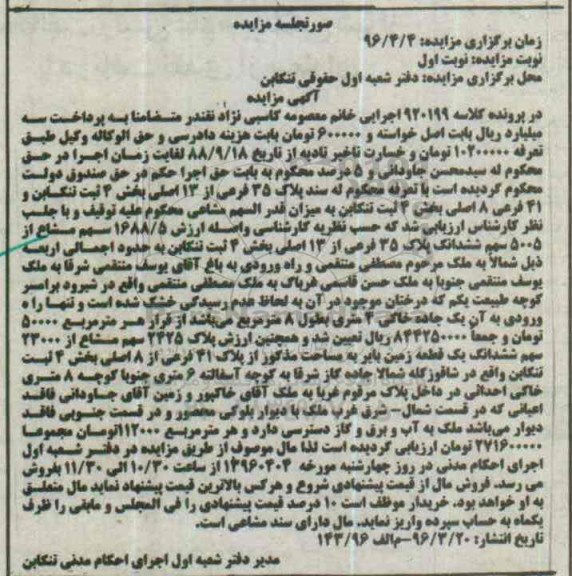 صورتجلسه مزایده
زمان برگزاری مزایده: ۹۶/۴/۴
نوبت مزایده: نوبت اول
محل برگزاری مزایده: دفتر شعبه اول حقوقی تنکابن
آگهی مزایده
در پرونده کلاسه ۹۲۰۱۹۹ اجرایی خانم معصومه کاسبی نژاد تفندر متضامنا به پرداخت سه
میلیارد ریال بابت اصل خواسته و ۶۰۰۰۰۰ تومان بابت هزینه دادرسی و حق الوکاله وکیل طبق
تعرفه ۱۰۲۰۰۰۰۰ تومان و خسارت تاخیر تادیه از تاریخ ۸۸/۹/۱۸ لغایت زمان اجرا در حق
محکوم له سیدمحسن جاودانی و ۵ درصد محکوم به بابت حق اجرا حکم در حق صندوق دولت
محکوم گردیده است با تعرفه محکوم له سند پلاک ۳۵ فرعی از ۱۳ اصلی بخش ۴ ثبت تنکابن و
۴۱ فرعی ۸ اصلی بخش ۴ ثبت تنکابن به میزان قدر السهم مشاعی محکوم علیه توقیف و با جلب
نظر کارشناس ارزیابی شد که حسب نظریه کارشناسی واصله ارزش ۱۶۸۸/۵ سهم مشاع از
۵۰۰۵ سهم ششدانگ پلاک ۳۵ فرعی از ۱۳ اصلی بخش ۴ ثبت تنکابن به حدود اجمالی اربعه
ذیل شمالا به ملک مرحوم مصطفی منتقمی و راه ورودی به باغ آقای یوسف منتقمی شرقا به ملک
یوسف منتقمی جنوبا به ملک حسن قاسمی غرباک به ملک مصطفی منتقمی واقع در شیرود برامسر
کوچه طبیعت یکم که درختان موجود در آن به لحاظ عدم رسیدگی خشک شده است و تنها راه
ورودی به آن یک جاده خاکی ۳ متری بطول ۸ مترمربع می‌باشد از قرار هر مترمربع ۵۰۰۰۰
تومان و جمعاً ۸۴۴۲۵۰۰۰۰ ریال تعیین شد و همچنین ارزش پلاک ۲۴۲۵ سهم مشاع از ۲۳۰۰۰
سهم ششدانگ یک قطعه زمین بایر به مساحت مذکور از پلاک ۴۱ فرعی از ۸ اصلی بخش ۴ ثبت
تنکابن واقع در شاقوزکله شمالا جاده گاز شرقا به کوچه آسفالته ۶ متری جنوبا کوچه ۸ متری
خاکی احداثی در داخل پلاک مرقوم غربا به ملک آقای خاکپور و زمین آقای جاودانی فاقد
اعیانی که در قسمت شمال- شرق غرب ملک با دیوار بلوکی محصور و در قسمت جنوبی فاقد
دیوار می‌باشد ملک به آب و برق و گاز دسترسی دارد و هر مترمربع ۱۱۲۰۰۰تومان مجموعا
۲۷۱۶۰۰۰۰۰ تومان ارزیابی گردیده است لذا مال موصوف از طریق مزایده در دفتر شعبه اول
اجرای احکام مدنی در روز چهارشنبه مورخه ۱۳۹۶۰۴۰۴ از ساعت ۱۰/۳۰ الی ۱۱/۳۰ بفروش
می رسد. فروش مال از قیمت پیشنهادی شروع و هرکس بالاترین قیمت پیشنهاد نماید مال متعلق
به او خواهد بود. خریدار موظف است ۱۰ درصد قیمت پیشنهادی را فی المجلس و مابقی را ظرف
یکماه به حساب سپرده واریز نماید. مال دارای سند مشاعی است.
تاریخ انتشار: ۹۶/۳/۲۰-م‌الف ۱۴۳/۹۶
مدیر دفتر شعبه اول اجرای احکام مدنی تنکابن